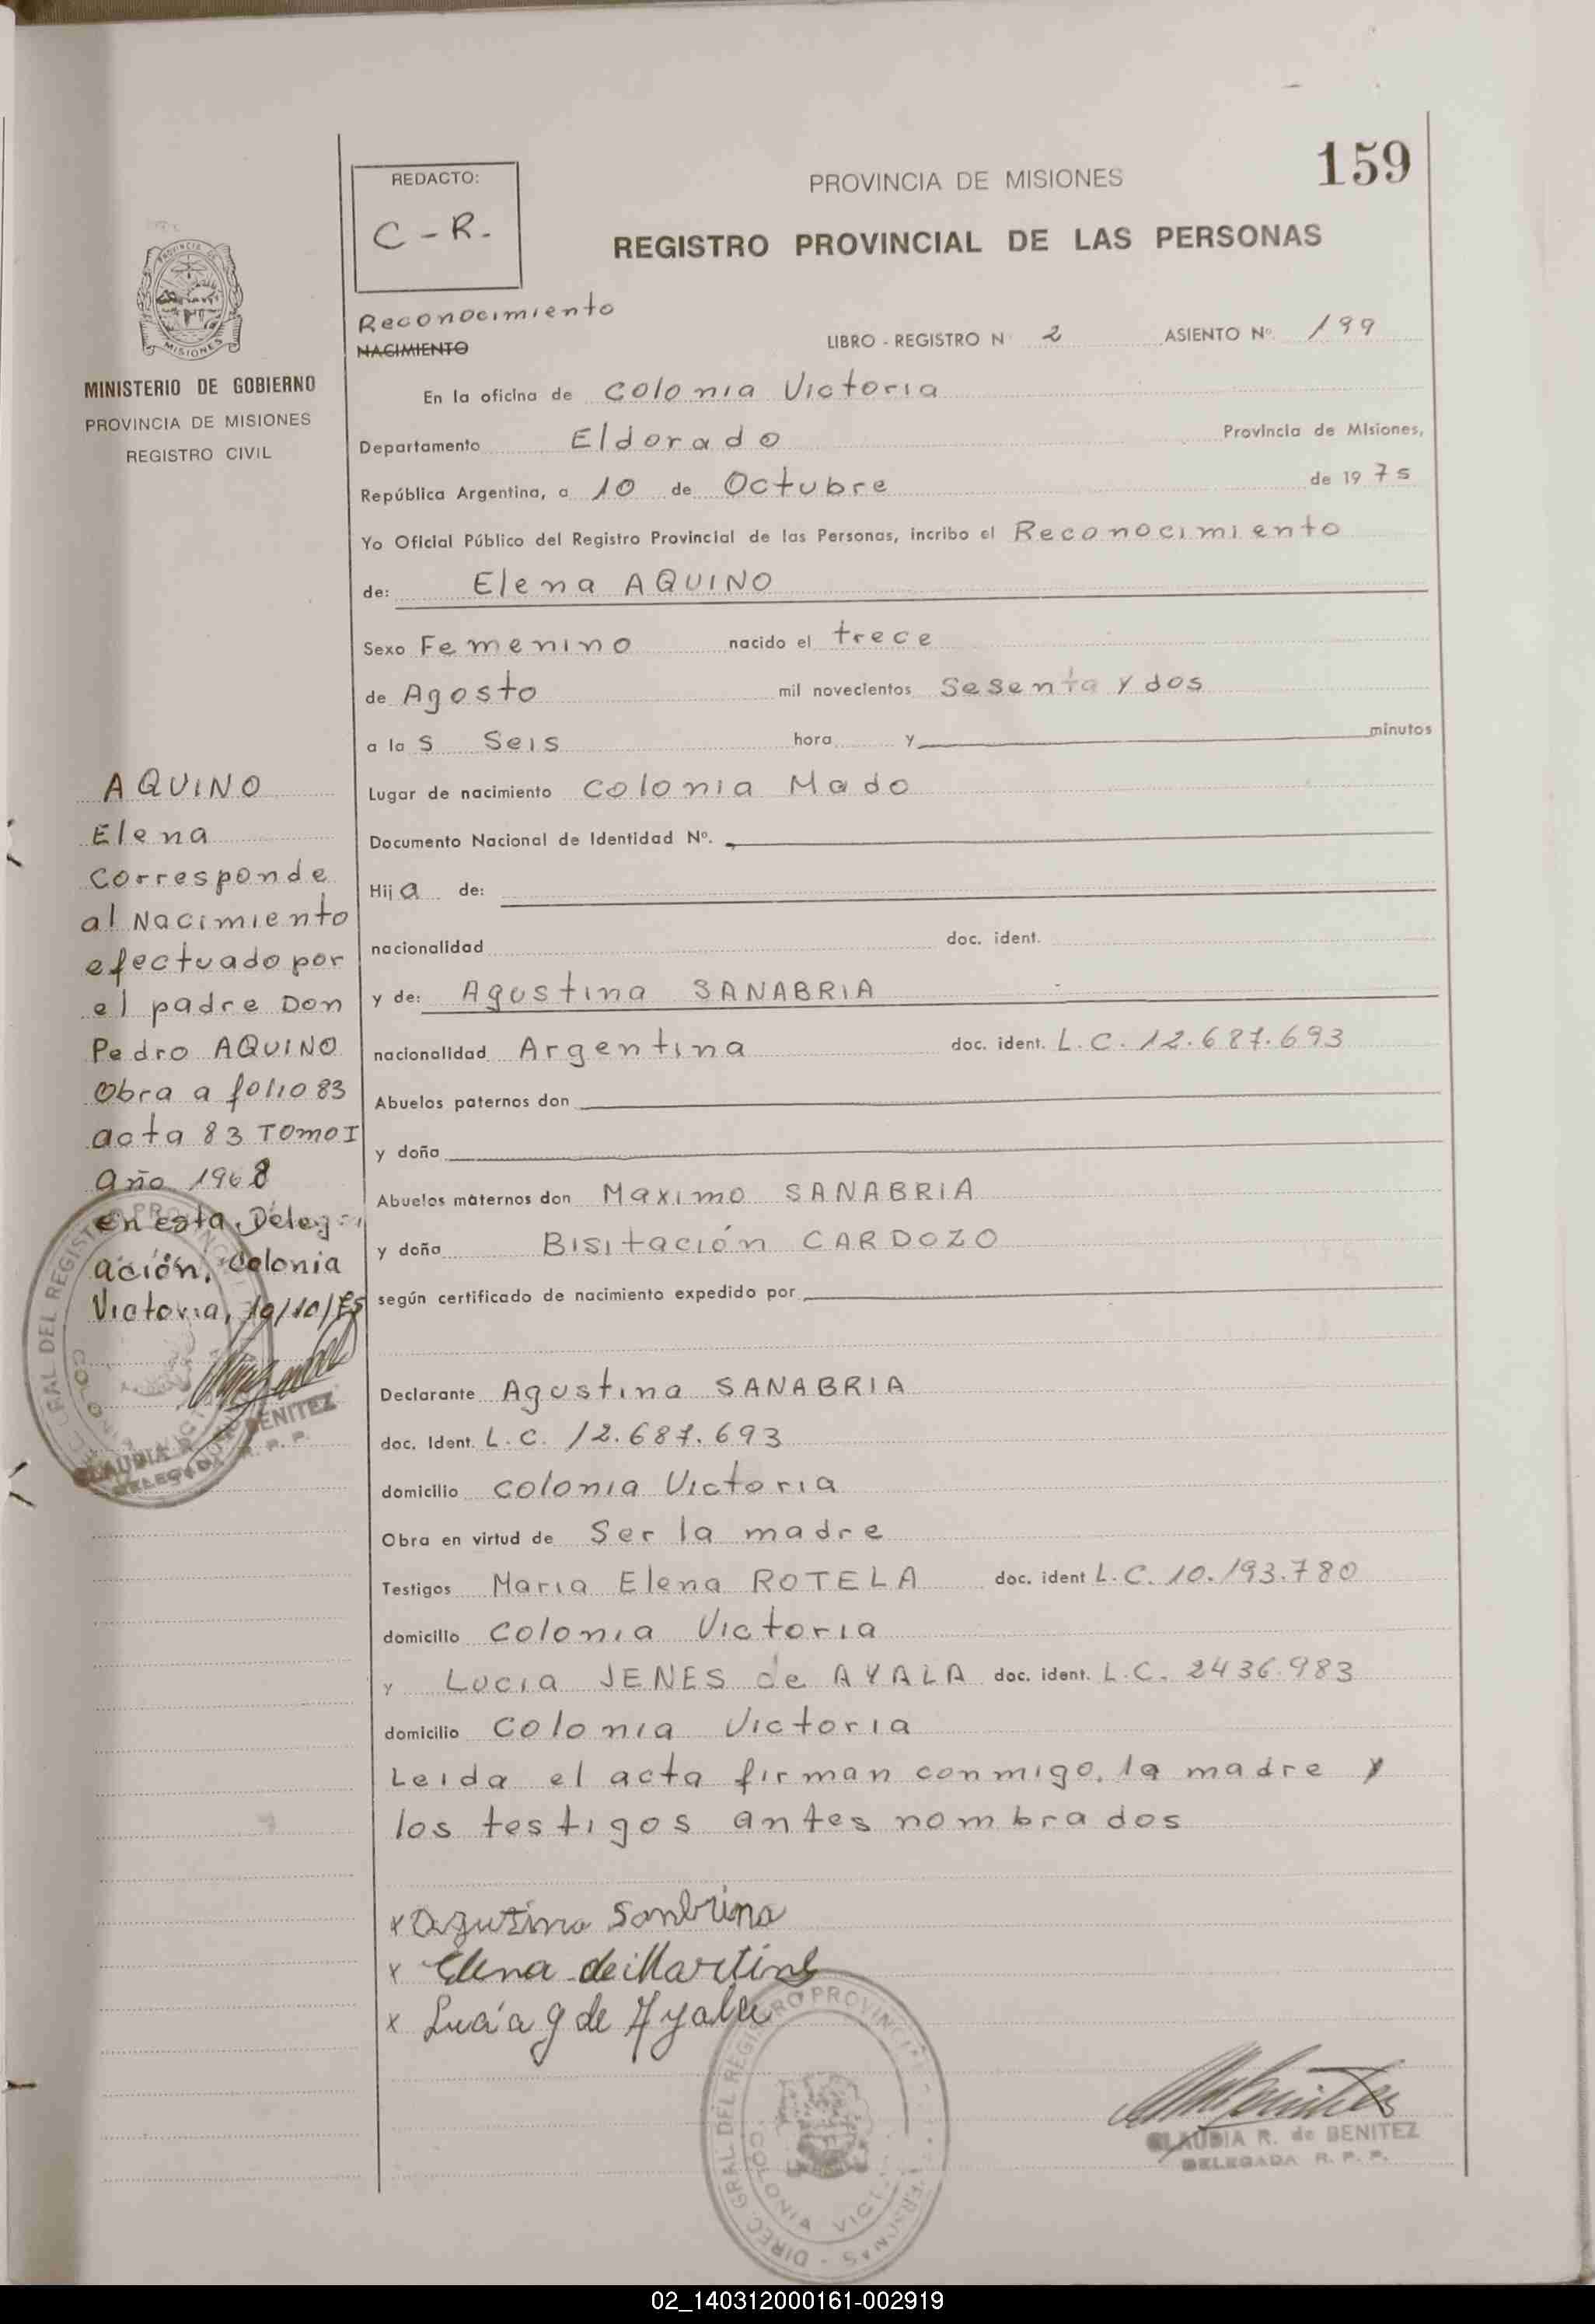 159
REDACTO:
C-R-
PROVINCIA DE MISIONES
REGISTRO PROVINCIAL DE LAS PERSONAS
PROVINCIA
MISIONES
MINISTERIO DE GOBIERNO
PROVINCIA DE MISIONES
REGISTRO CIVIL
Reconocimiento
NACIMIENTO
LIBRO - REGISTRO N 2 ASIENTO Nº. 199
En la oficina de Colonia Victoria
Departamento Eldorado Provincia de Misiones,
República Argentina, a 10 de Octubre de 1975
Yo Oficial Público del Registro Provincial de las Personas, incribo el Reconocimiento
de: Elena AQUINO
Sexo Femenino nacido el trece
de Agosto mil novecientos Sesenta y dos
a las Seis hora y minutos
Lugar de nacimiento Colonia Mado
Documento Nacional de Identidad Nº.
Hija de:
nacionalidad doc. ident.
y de: Agustina SANABRIA
nacionalidad Argentina doc. ident. L.C. 12.687.693
Abuelos paternos don
y doña
Abuelos maternos don Maximo SANABRIA
y doña Bisitación CARDOZO
según certificado de nacimiento expedido por
Declarante Agustina SANABRIA
doc. Ident. L.C. 12.687.693
domicilio Colonia Victoria
Obra en virtud de Ser la madre
Testigos Maria Elena ROTELA doc. ident L.C. 10.193.780
domicilio Colonia Victoria
y Lucia JENES de AYALA doc. ident. L.C. 2436.983
domicilio Colonia Victoria
Leida el acta firman conmigo, la madre y
los testigos antes nombrados
AQUINO
Elena
Corresponde
al Nacimiento
efectuado por
el padre Don
Pedro AQUINO
Obra a folio 83
acta 83 TOMO I
año 1968
en esta Deleg-
ación, Colonia
Victoria, 10/10/75
CLAUDIA R. de BENITEZ
DELEGADA R. P. P.
x Agustina
x Elena de Martins
x Lucía g de Ayala
DIREC. GRAL DEL REGISTRO PROVINCIAL PERSONAS
COLONIA VICT
CLAUDIA R. de BENITEZ
DELEGADA R. P. P.
02_140312000161-002919